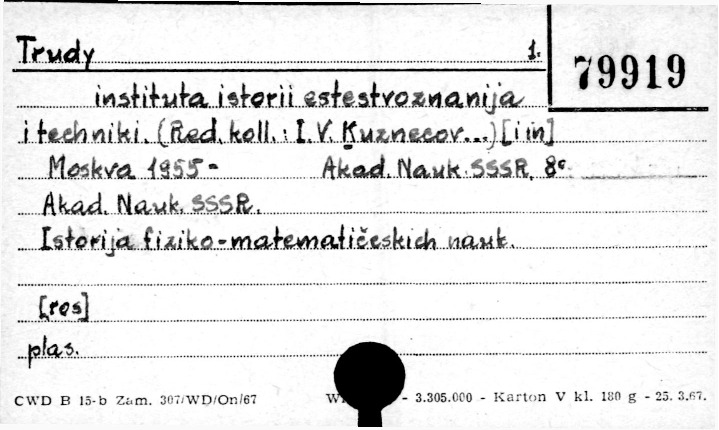 Trudy 1.
79919
instituta istorii estestvoznanija
i techniki. (Red. koll.: I. V. Kuznecov...) [i in]
Moskva 1955- Akad. Nauk. SSSR. 8°
Akad. Nauk. SSSR.
Istorija fiziko-matematičeskich nauk.
[ros]
plas.
CWD B 15-b Zam. 307/WD/On/67 - 3.305.000 - Karton V kl. 180 g - 25. 3.67.